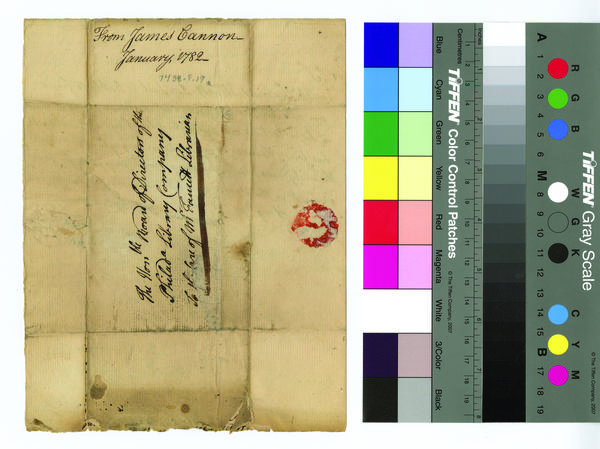 From James Cannon
January, 1782
7438.F.19a
The Honble Board of Directors of the
Philada Library Company
To the Care of Mr Librarian
Inches
Centimetres
TIFFEN Color Control Patches
© The Tiffen Company, 2007
Blue
Cyan
Green
Yellow
Red
Magenta
White
3/Color
Black
TIFFEN Gray Scale
© The Tiffen Company, 2007
R
G
B
W
G
K
C
Y
M
A
1
2
3
4
5
6
M
8
9
10
11
12
13
14
15
B
17
18
19